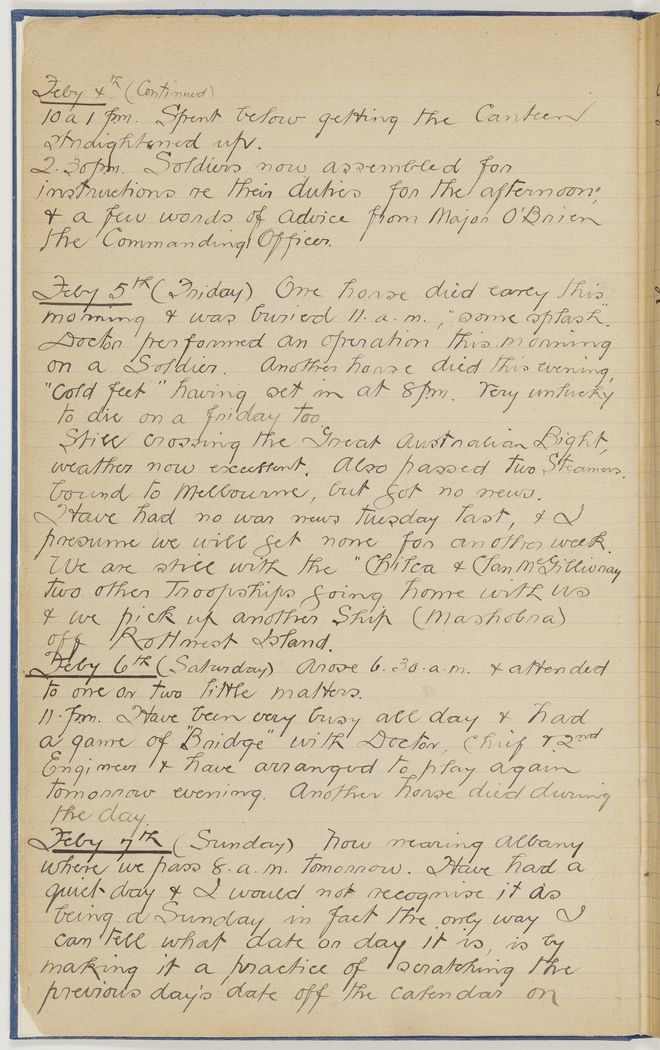 Feby 4th (Continued)
10 a 1 pm. Spent below getting the Canteen
straightened up.
2.30pm. Soldiers now assembled for
instructions re their duties for the afternoon,
& a few words of advice from Major O'Brien
the Commanding Officer.
Feby 5th (Friday) One horse died early this
morning & was buried 11.a.m., "some splash".
Doctor performed an operation this morning
on a Soldier. Another horse died this evening,
"Cold feet" having set in at 8pm. Very unlucky
to die on a friday too.
Still crossing the Great Australian Bight,
weather now excellent. Also passed two Steamers.
bound to Melbourne, but got no news.
Have had no war news tuesday last, & I
presume we will get none for another week.
We are still with the "Chilca & Clan McGillivray
two other Troopships going home with us
& we pick up another Ship (Mashobra)
off Rottnest Island.
Feby 6th (Saturday) Arose 6.30.a.m. & attended
to one or two little matters.
11.pm. Have been very busy all day & had
a game of "Bridge" with Doctor, Chief & 2nd
Engineer & have arranged to play again
tomorrow evening. Another horse died during
the day.
Feby 7th (Sunday) Now nearing Albany
where we pass 8.a.m. tomorrow. Have had a
quiet day & I would not recognise it as
being a Sunday in fact the only way I
can tell what date or day it is, is by
making it a practice of scratching the
previous day's date off the calendar on